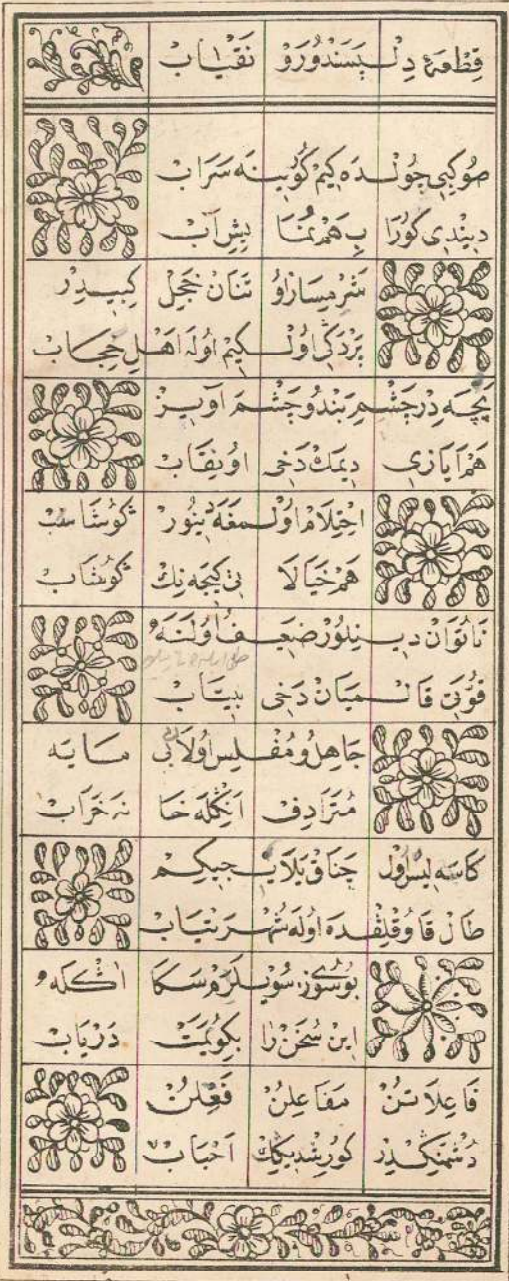 قِطْعَهٔ دِلْپَسَنْدُورَوْ نَقْيَابْ
صُوكِبِى چُولْدَه كِيمْ كُورِينَه سَرَابْ
دِينْدِى كُورَا بِهَمْ نُمَا بِيشِ آبْ
شَرْمِسَارُو تَنَانْ خَجِلْ كِبِيدِرْ
پَرْدَكِى اُولْكِيمْ اُولَه اَهْلِ حِجَابْ
پَچَه دِرْ چَشْمِ بَنْدُو چَشْمَ آوِيزْ
هَمْ اَيَازِى دِيمَكْ دَخِى اُو نِقَابْ
اِحْتِلَامْ اُولْمَغَه دِينُورْ كُوشَاسَبْ
هَمْ خَيَالَا تِى كِيجَه نِكْ كُوشَابْ
نَاتُوَانْ دِينِلُورْ ضَعِيفْ اُولَنَه
قُوَّتِى قَالْمَيَانْ دَخِى بِيتَابْ
جَاهِلُ و مُفْلِسْ اُولَا بِى مَايَه
مُتَرَادِفْ اَنِكْلَه خَا نَه خَرَابْ
كَاسَه لِيسْ اُولْ چَنَاقْ يَلَايِيجِيكِمْ
طَالْ قَاوُقْلِقْدَه اُولَه شُهْرَتْيَابْ
بُو سُوزِ سُويْلَرَمْ سَكَا اَكْلَه
اِينْ سُخَنْ رَا بِكُويَمَتْ دَرْيَابْ
فَاعِلَاتُنْ مَفَاعِلُنْ فَعِلُنْ
دُشْمَنِكْدِرْ كُورِشْدِيكِكْ اَحْبَابْ